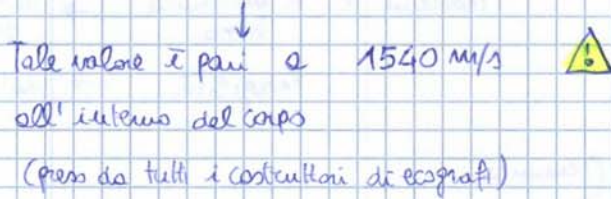 Tale valore è pari a 1540 m/s
all' interno del corpo
(preso da tutti i costruttori di ecografi)